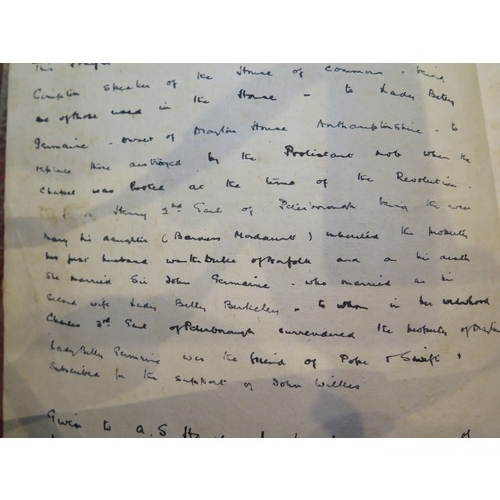 This Prayer
Compton Speaker of the House of Commons - being
one of those used in the House - to Lady Betty
Germaine - owner of Drayton House Northamptonshire - to
replace those destroyed by the Protestant mob when the
Chapel was looted at the time of the Revolution.
Henry 2nd Earl of Peterborough being the owner
Mary his daughter (Baroness Mordaunt) inherited the property
her first husband was the Duke of Norfolk and on his death
She married Sir John Germaine - who married as his
second wife Lady Betty Berkeley - to whom in her widowhood
Charles 3rd Earl of Peterborough surrendered the property of Drayton
Lady Betty Germaine was the friend of Pope & Swift &
Subscribed for the support of John Wilkes
Given to A.S of